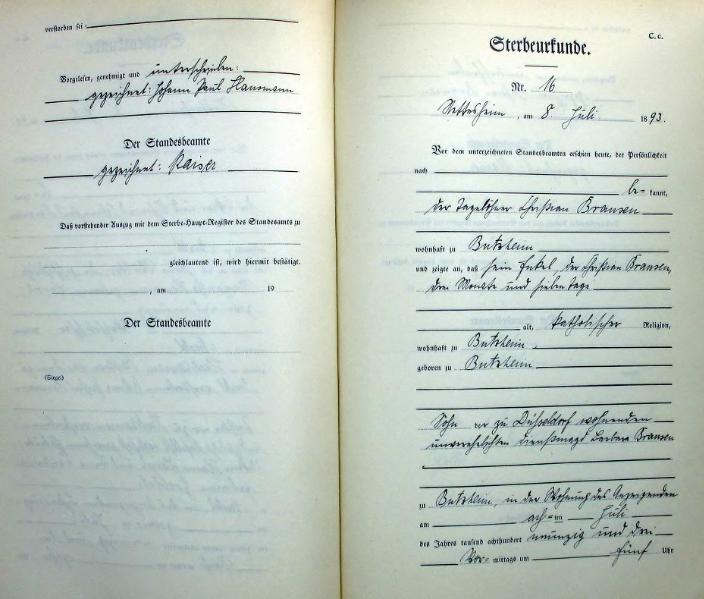 verstorben sei
Vorgelesen, genehmigt und unterschrieben:
gezeichnet: Johann Paul Hansmann
Der Standesbeamte
gezeichnet: Kaiser
Daß vorstehender Auszug mit dem Sterbe-Haupt-Register des Standesamts zu
gleichlautend ist, wird hiermit bestätigt.
, am 19
Der Standesbeamte
(Siegel)
C. c.
Sterbeurkunde.
Nr. 16
Nettesheim, am 8. Juli 1893.
Vor dem unterzeichneten Standesbeamten erschien heute, der Persönlichkeit
nach
be- kannt,
der Tagelöhner Christian Bransen
wohnhaft zu Butzheim
und zeigte an, daß sein Enkel, der Christian Bransen,
drei Monate und sieben Tage
alt, katholischer Religion,
wohnhaft zu Butzheim,
geboren zu Butzheim
Sohn der zu Düsseldorf wohnenden
unverehelichten Dienstmagd Barbara Bransen
zu Butzheim, in der Wohnung des Anzeigenden
am acht-ten Juli
des Jahres tausend achthundert neunzig und drei
Vor- mittags um fünf Uhr